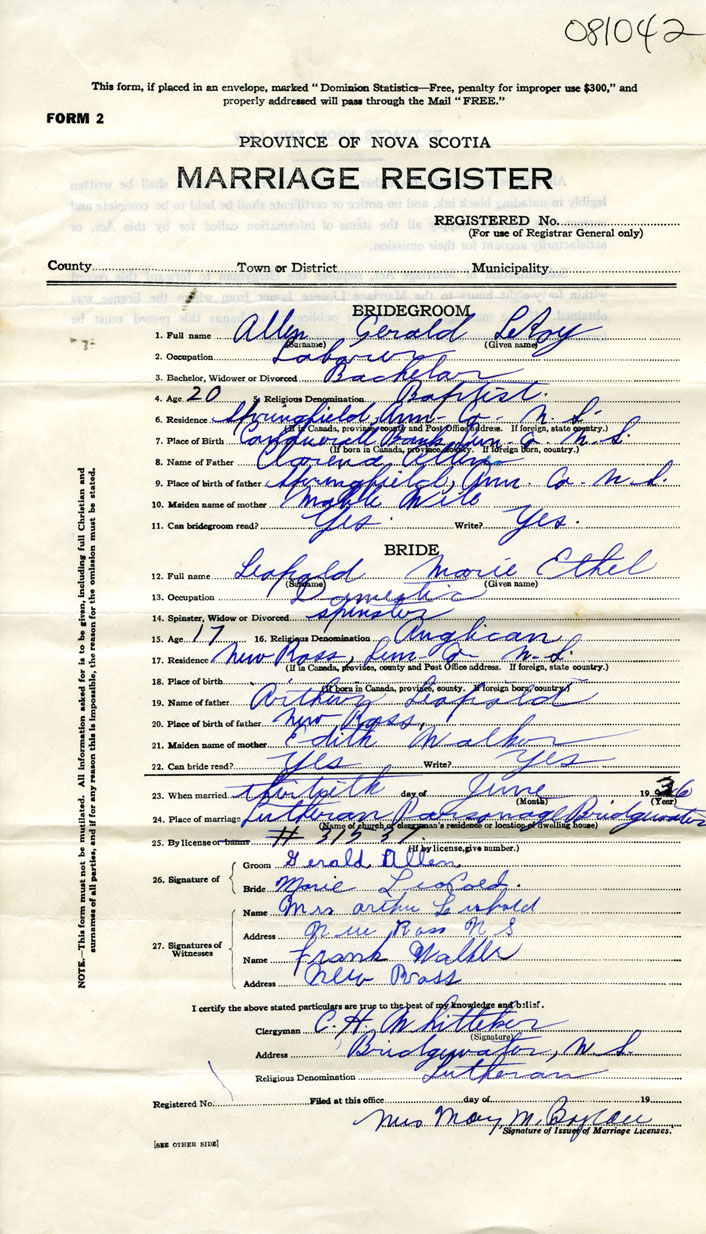 081042
This form, if placed in an envelope, marked "Dominion Statistics—Free, penalty for improper use $300," and
properly addressed will pass through the Mail "FREE."
FORM 2
PROVINCE OF NOVA SCOTIA
MARRIAGE REGISTER
REGISTERED No.
(For use of Registrar General only)
County Town or District Municipality
BRIDEGROOM
1. Full name Allen Gerald LeRoy
(Surname) (Given name)
2. Occupation Labourer
3. Bachelor, Widower or Divorced Bachelor
4. Age 20 5. Religious Denomination Baptist.
6. Residence Springfield, Ann. Co. N.S.
(If in Canada, province, county and Post Office address. If foreign, state country.)
7. Place of Birth Conquerall Bank, Lun. Co. N.S.
(If born in Canada, province, county. If foreign born, country.)
8. Name of Father Clarence Allen
9. Place of birth of father Springfield, Ann. Co. N.S.
10. Maiden name of mother
11. Can bridegroom read? Yes Write? Yes.
BRIDE
12. Full name Leopold Marie Ethel
(Surname) (Given name)
13. Occupation Domestic
14. Spinster, Widow or Divorced spinster
15. Age 17 16. Religious Denomination Anglican
17. Residence New Ross, Lun. Co. N.S.
(If in Canada, province, county and Post Office address. If foreign, state country.)
18. Place of birth
(If born in Canada, province, county. If foreign born, country.)
19. Name of father Arthur Leopold
20. Place of birth of father New Ross,
21. Maiden name of mother Edith Walker
22. Can bride read? Yes Write? Yes
23. When married day of June 1936
(Month) (Year)
24. Place of marriage Lutheran Parsonage Bridgewater
(Name of church or clergyman's residence or location of dwelling house)
25. By license or banns # 31237
(If by license, give number.)
26. Signature of
Groom Gerald Allen
Bride Marie Leopold.
27. Signatures of Witnesses
Name Mrs Arthur Leopold
Address New Ross N S
Name Frank Walker
Address New Ross
I certify the above stated particulars are true to the best of my knowledge and belief.
Clergyman C. H. Whitteker
(Signature)
Address Bridgewater, N.S.
Religious Denomination Lutheran
Registered No. Filed at this office day of 19
Mrs May M.
Signature of Issuer of Marriage Licenses.
[SEE OTHER SIDE]
NOTE.—This form must not be mutilated. All information asked for is to be given, including full Christian and
surnames of all parties, and if for any reason this is impossible, the reason for the omission must be stated.